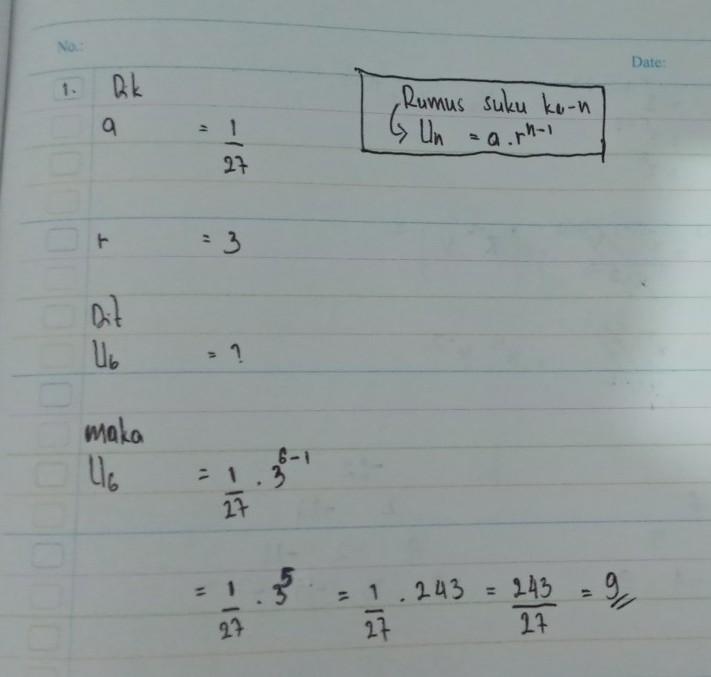 No.:
Date:
1. Dik
Rumus suku ke-n
↳ Uₙ = a . rⁿ⁻¹
a = 1/27
r = 3
Dit
U₆ = ?
maka
U₆ = 1/27 . 3⁶⁻¹
= 1/27 . 3⁵ = 1/27 . 243 = 243/27 = 9